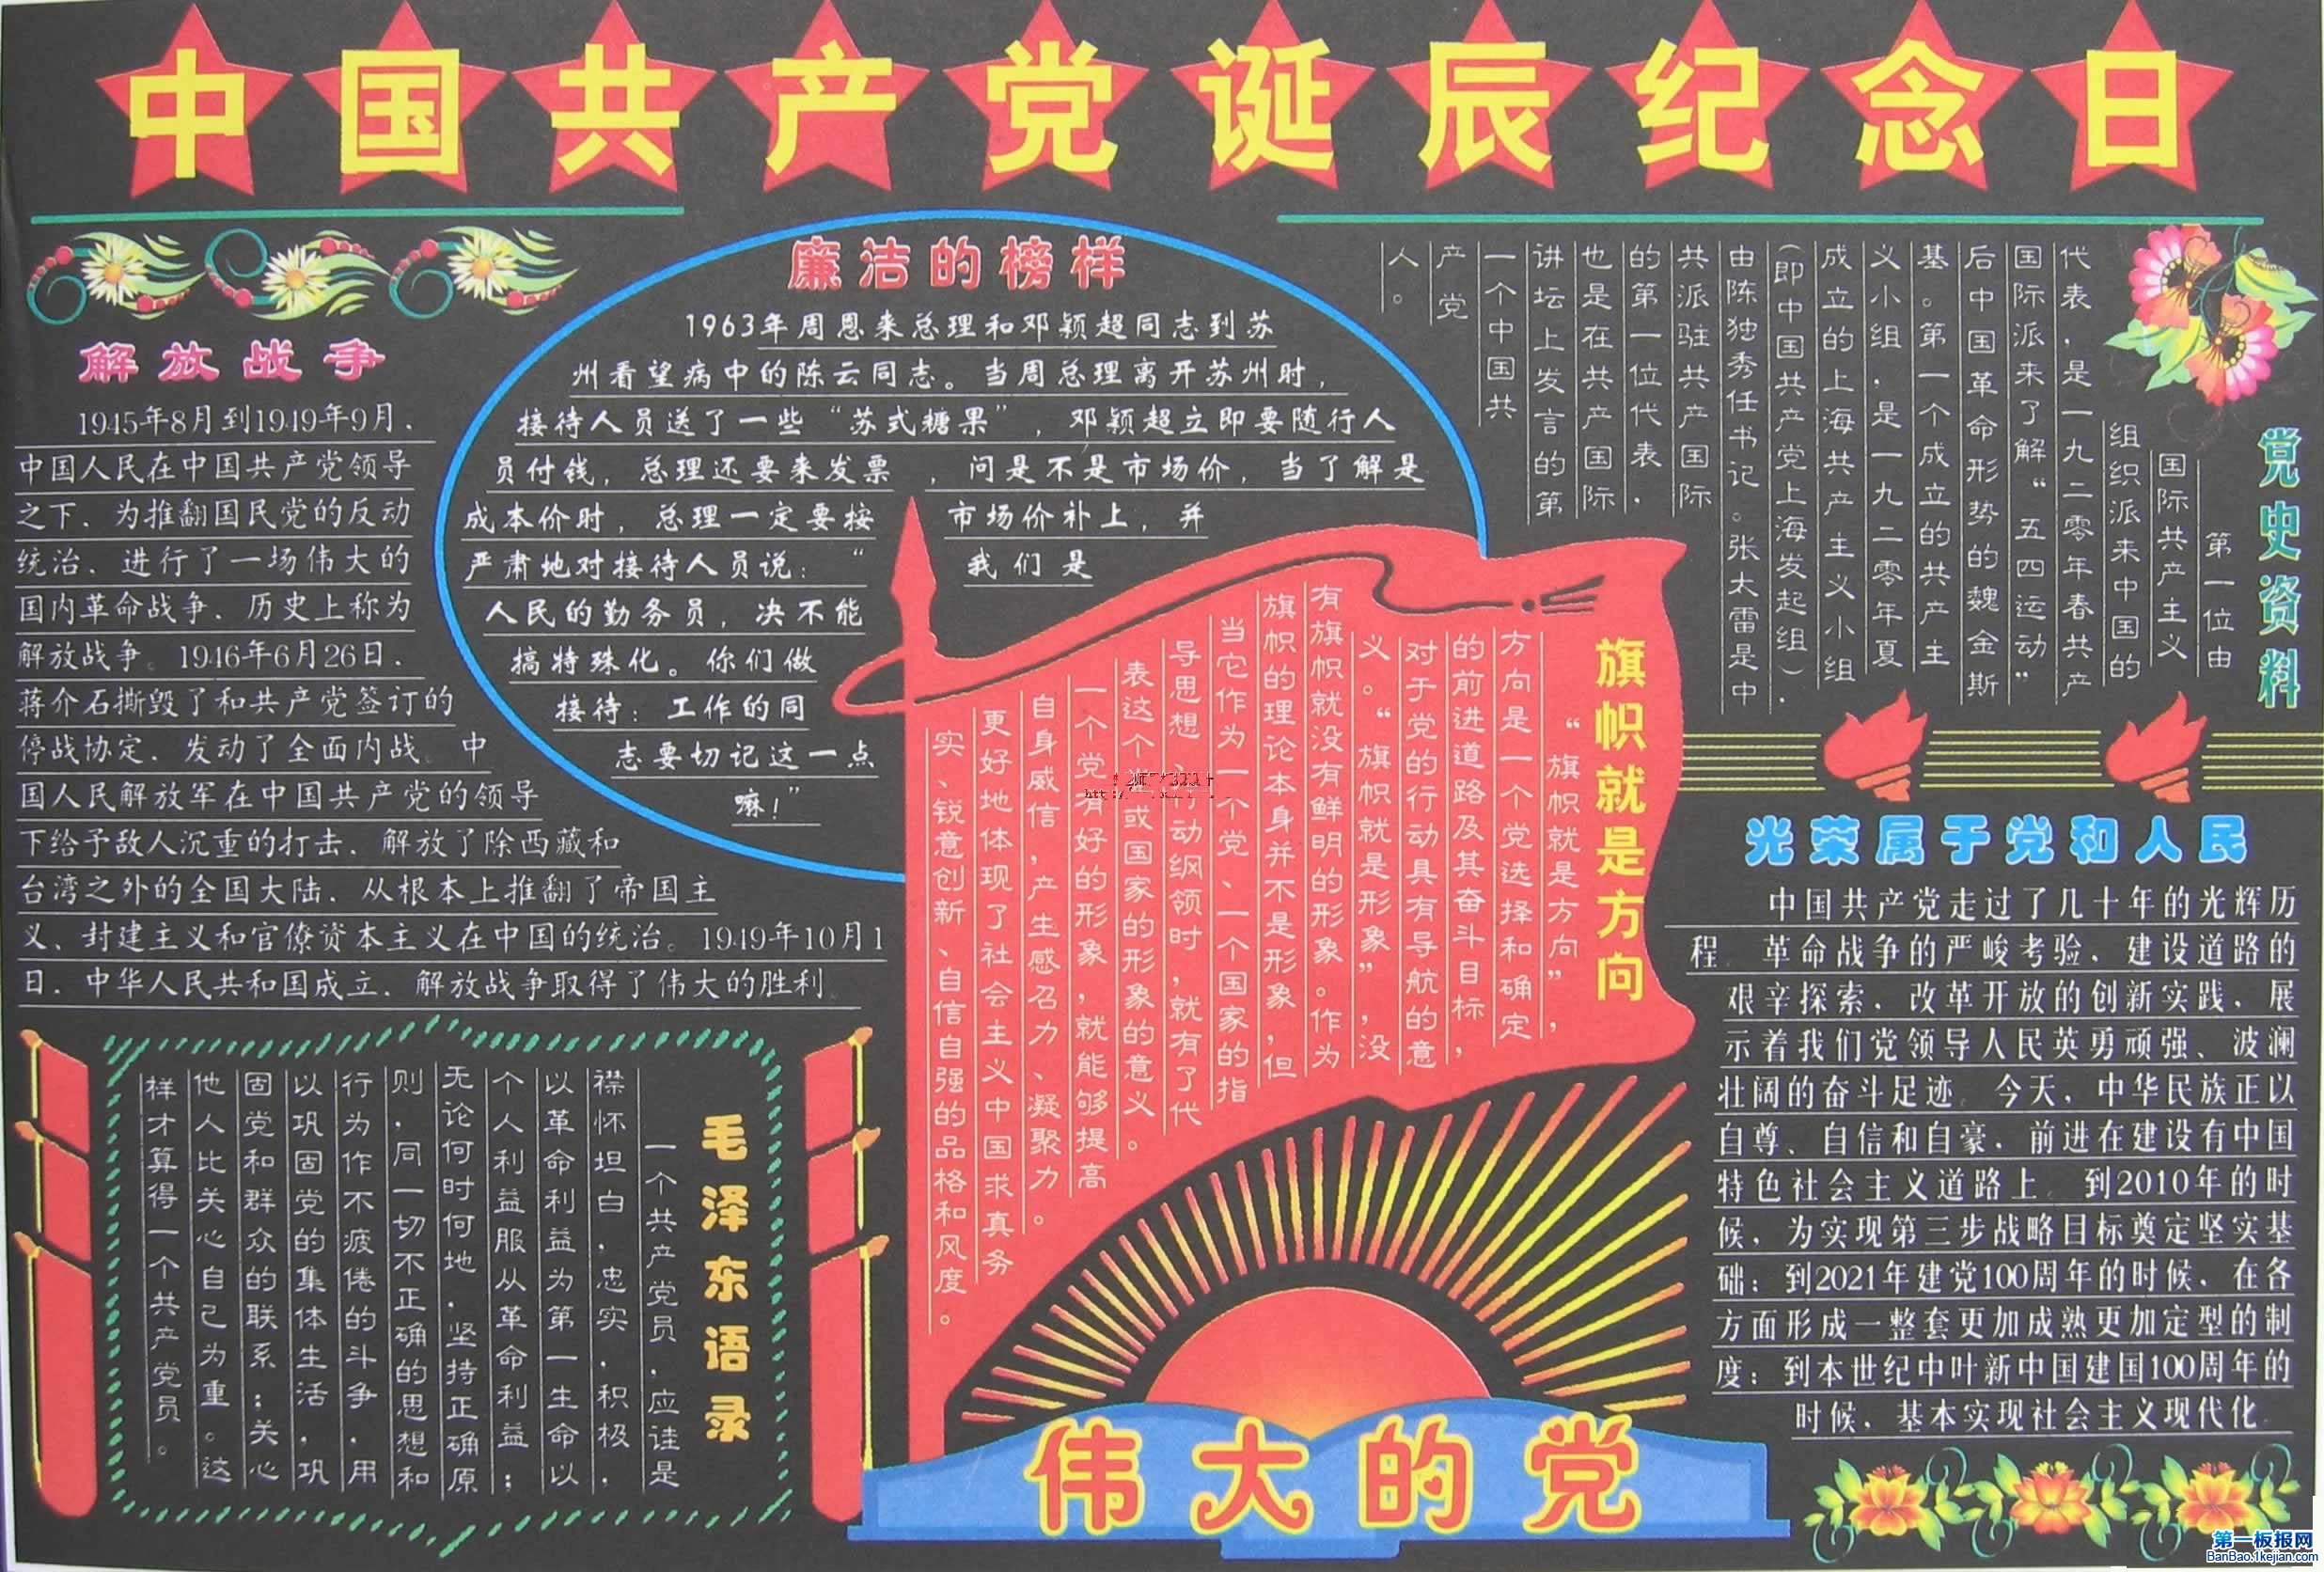 中国共产党诞辰纪念日
解放战争
1945年8月到1949年9月．
中国人民在中国共产党领导
之下．为推翻国民党的反动
统治．进行了一场伟大的
国内革命战争．历史上称为
解放战争。1946年6月26日．
蒋介石撕毁了和共产党签订的
停战协定．发动了全面内战。中
国人民解放军在中国共产党的领导
下给予敌人沉重的打击．解放了除西藏和
台湾之外的全国大陆．从根本上推翻了帝国主
义、封建主义和官僚资本主义在中国的统治。1949年10月1
日．中华人民共和国成立．解放战争取得了伟大的胜利
廉洁的榜样
1963年周恩来总理和邓颖超同志到苏
州看望病中的陈云同志。当周总理离开苏州时，
接待人员送了一些“苏式糖果”，邓颖超立即要随行人
员付钱，总理还要来发票，问是不是市场价，当了解是
成本价时，总理一定要按市场价补上，并
严肃地对接待人员说：“我们是
人民的勤务员，决不能
搞特殊化。你们做
接待：工作的同
志要切记这一点
嘛！”
党史资料
第一位由
国际共产主义
组织派来中国的
代表，是一九二零年春共产
国际派来了解“五四运动”
后中国革命形势的魏金斯
基。第一个成立的共产主
义小组，是一九二零年夏
成立的上海共产主义小组
（即中国共产党上海发起组），
由陈独秀任书记。张太雷是中
共派驻共产国际
的第一位代表，
也是在共产国际
讲坛上发言的第
一个中国共
产党
人。
旗帜就是方向
“旗帜就是方向”，
方向是一个党选择和确定
的前进道路及其奋斗目标，
对于党的行动具有导航的意
义。“旗帜就是形象”，没
有旗帜就没有鲜明的形象。作为
旗帜的理论本身并不是形象，但
当它作为一个党、一个国家的指
导思想、行动纲领时，就有了代
表这个党或国家的形象的意义。
一个党有好的形象，就能够提高
自身威信，产生感召力、凝聚力。
更好地体现了社会主义中国求真务
实、锐意创新、自信自强的品格和风度。
光荣属于党和人民
中国共产党走过了几十年的光辉历
程．革命战争的严峻考验、建设道路的
艰辛探索．改革开放的创新实践、展
示着我们党领导人民英勇顽强、波澜
壮阔的奋斗足迹。今天，中华民族正以
自尊、自信和自豪，前进在建设有中国
特色社会主义道路上。到2010年的时
候，为实现第三步战略目标奠定坚实基
础；到2021年建党100周年的时候，在各
方面形成一整套更加成熟更加定型的制
度；到本世纪中叶新中国建国100周年的
时候，基本实现社会主义现代化
毛泽东语录
一个共产党员，应该是
襟怀坦白，忠实，积极，
以革命利益为第一生命以
个人利益服从革命利益；
无论何时何地，坚持正确原
则，同一切不正确的思想和
行为作不疲倦的斗争，用
以巩固党的集体生活，巩
固党和群众的联系；关心
他人比关心自己为重。这
样才算得一个共产党员。
伟大的党
第一板报网
BanBao.1kejian.com